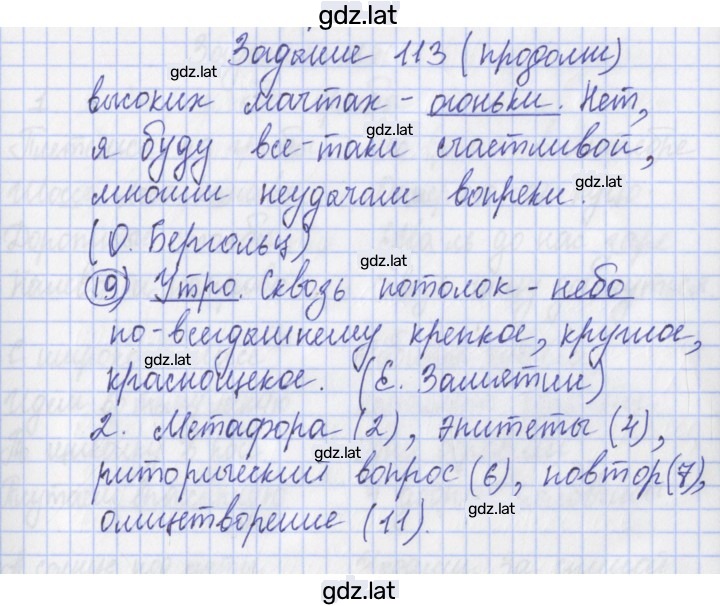 gdz.lat
Задание 113 (продолж)
gdz.lat
высоких мачтах - огоньки. Нет,
gdz.lat
я буду все-таки счастливой,
многим неудачам вопреки.
gdz.lat
(О. Берггольц)
gdz.lat
19) Утро. Сквозь потолок - небо
по-всегдашнему крепкое, круглое,
gdz.lat
краснощекое. (Е. Замятин)
2. Метафора (2), эпитеты (4),
gdz.lat
риторический вопрос (6), повтор (7),
gdz.lat
олицетворение (11).
gdz.lat